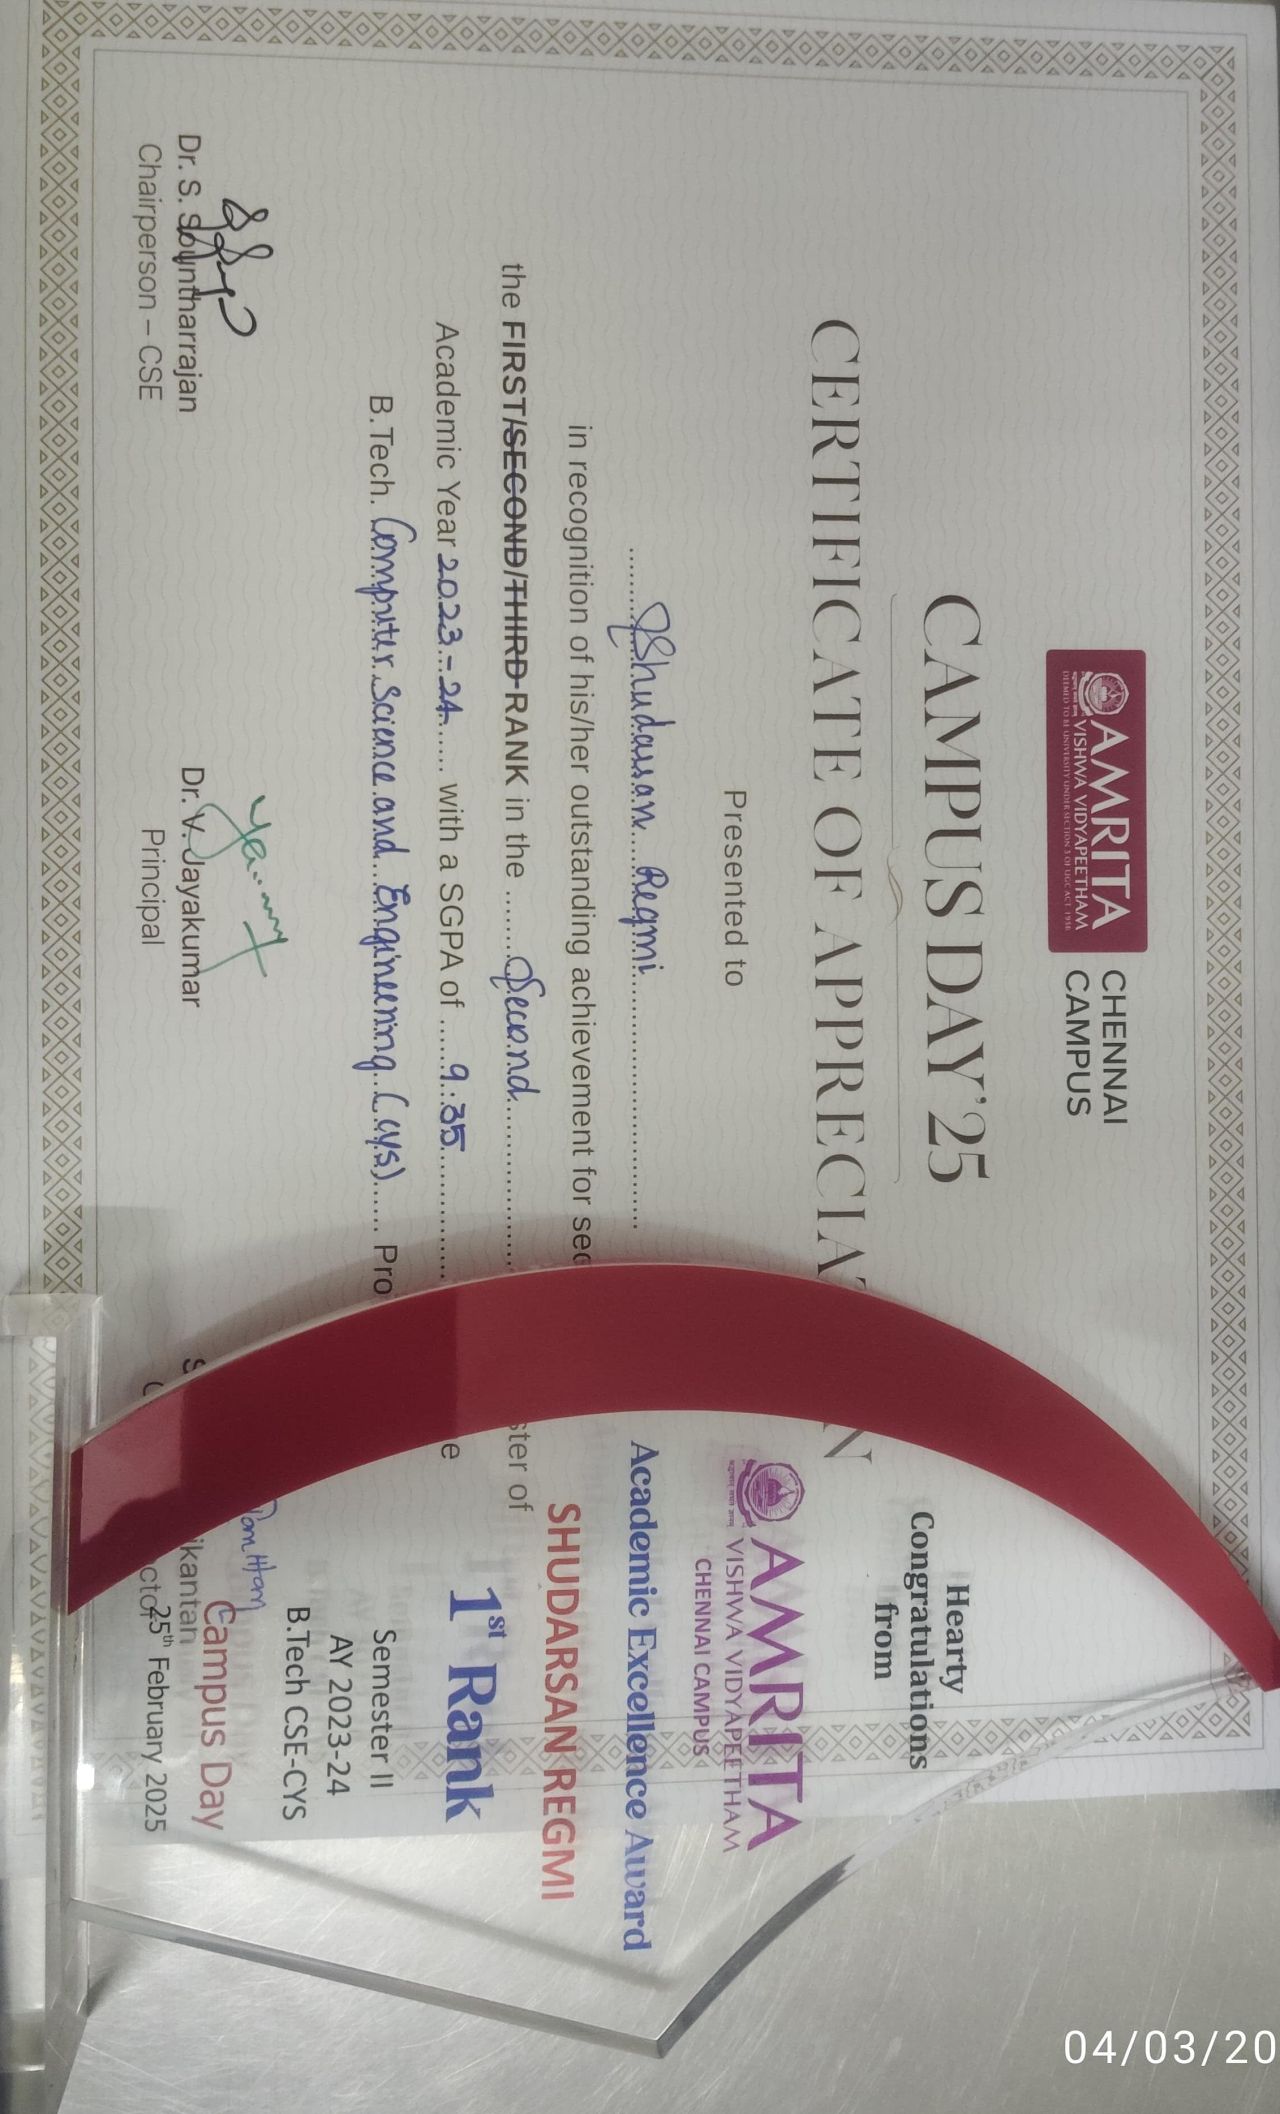 AMRITA
VISHWA VIDYAPEETHAM
DEEMED TO BE UNIVERSITY UNDER SECTION 3 OF UGC ACT 1956
CHENNAI
CAMPUS
CAMPUS DAY'25
CERTIFICATE OF APPRECIAT N
Presented to
Shudarsan Regmi
in recognition of his/her outstanding achievement for sec
the FIRST/SECOND/THIRD RANK in the Second ster of
Academic Year 2023-24 with a SGPA of 9.35 e
B.Tech. Computer Science and Engineering (cys) Pro
Dr. S. Sountharrajan
Chairperson – CSE
Dr. V. Jayakumar
Principal
ikantan
Hearty
Congratulations
from
AMRITA
VISHWA VIDYAPEETHAM
CHENNAI CAMPUS
Academic Excellence Award
SHUDARSAN REGMI
1st Rank
Semester II
AY 2023-24
B.Tech CSE-CYS
Campus Day
25th February 2025
04/03/20